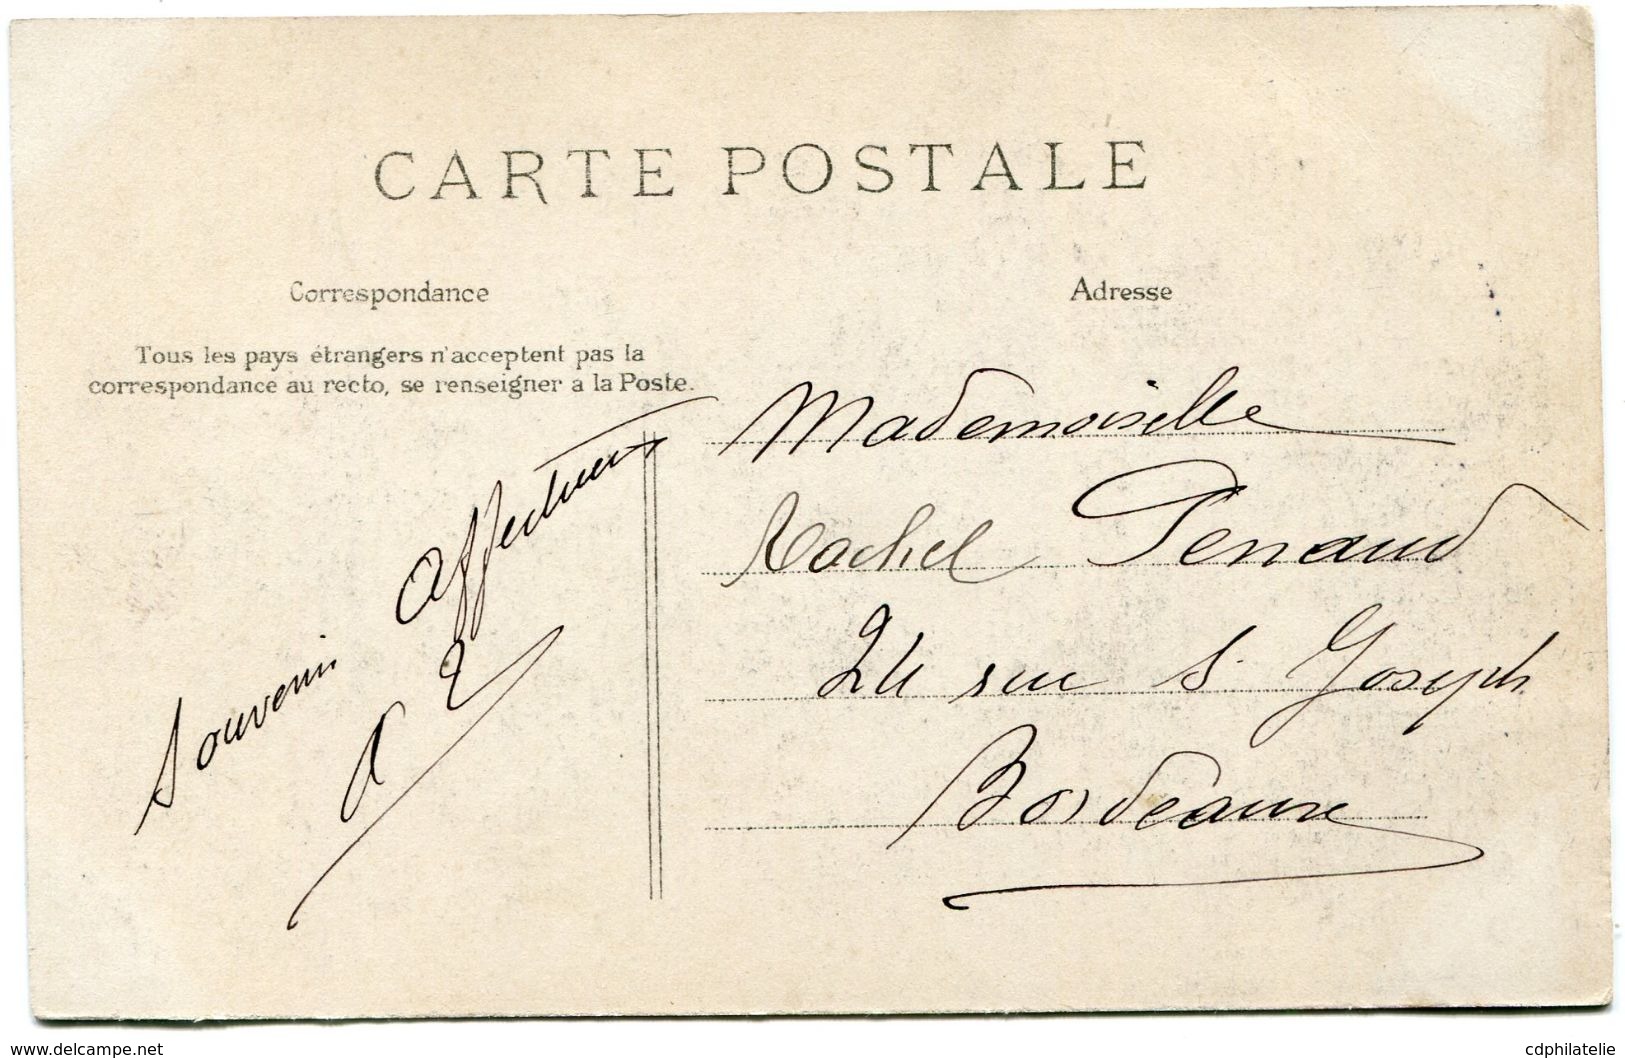 CARTE POSTALE
Correspondance
Adresse
Tous les pays étrangers n'acceptent pas la
correspondance au recto, se renseigner a la Poste.
Souvenir affectueux
Mademoiselle
Rachel Penaud
24 rue S. Joseph
Bordeaux
www.delcampe.net
cdphilatelie